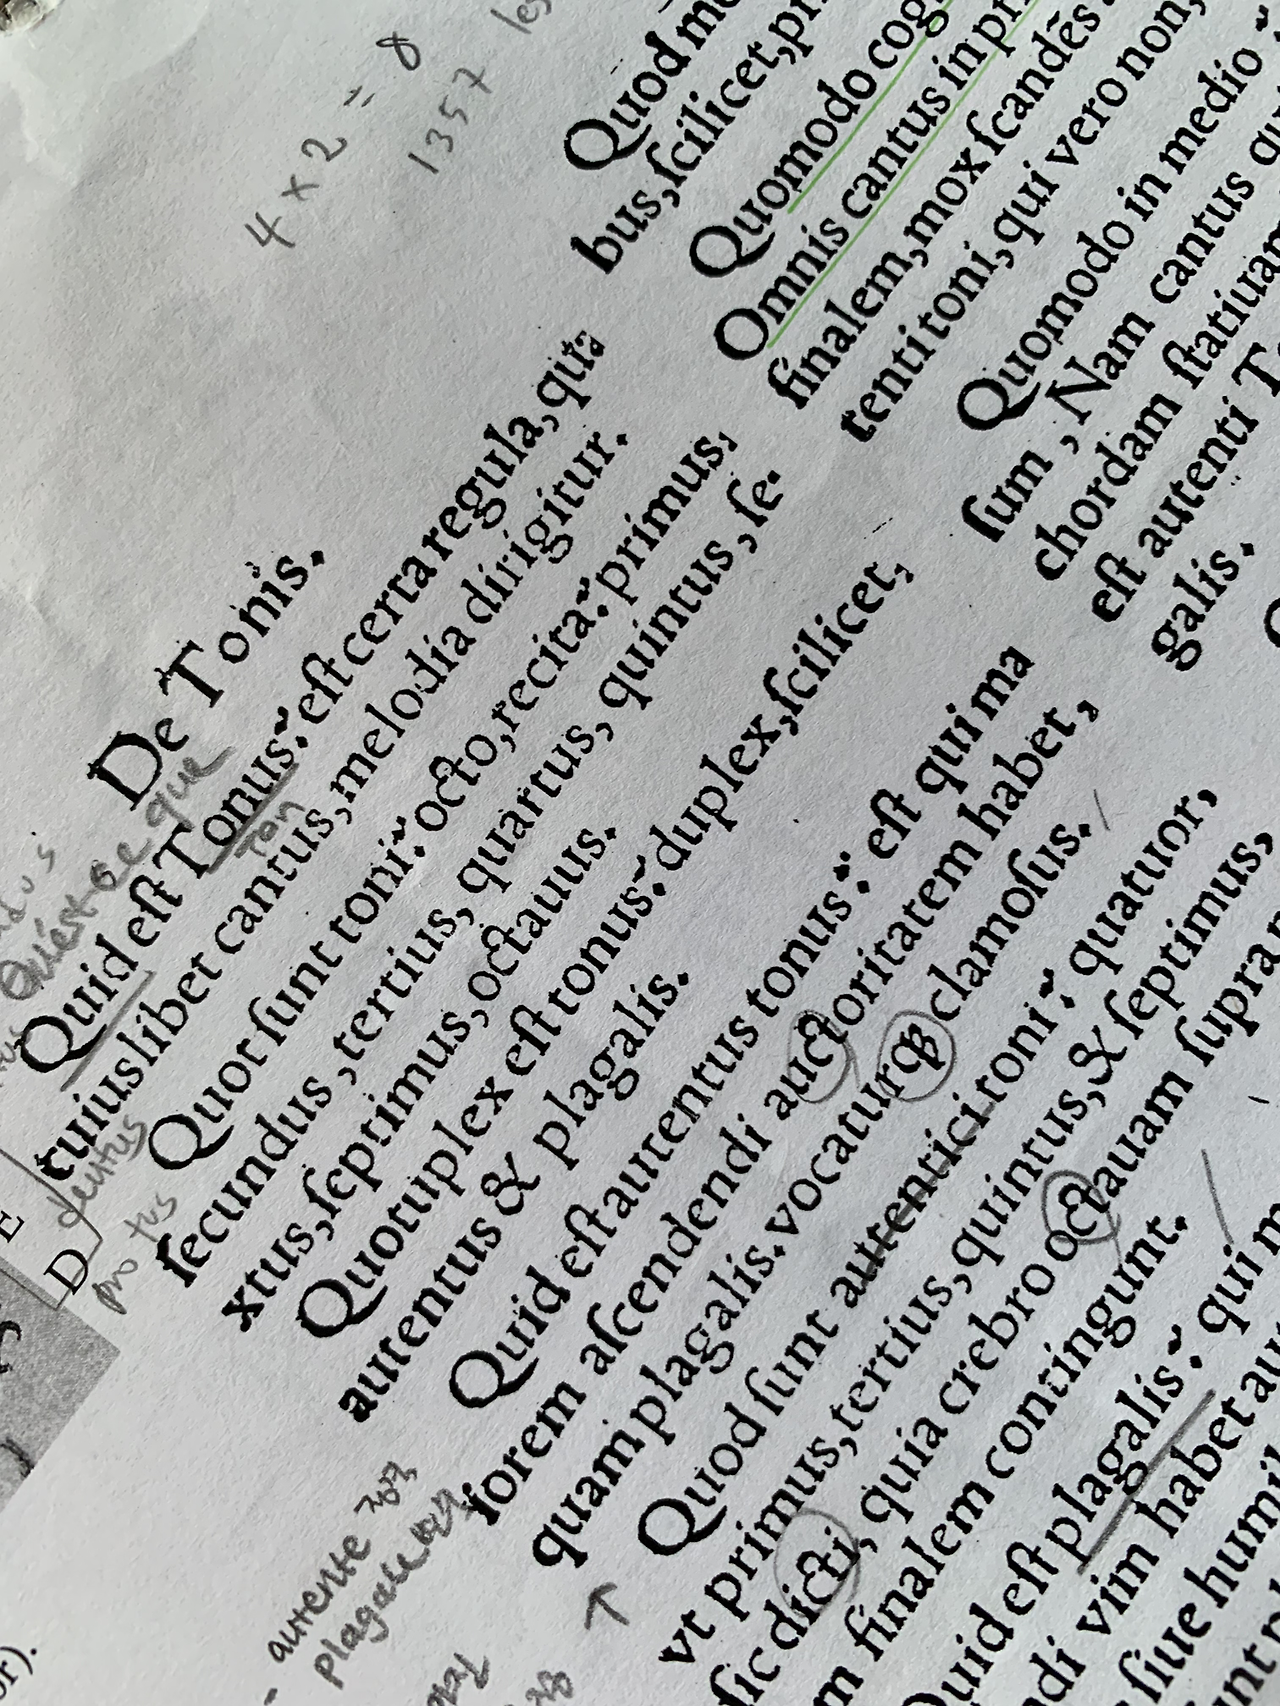 4 x 2 = 8
1 3 5 7
De Tonis.
Quid eſt Tonus? eſt certa regula, qua
cuiuslibet cantus, melodia dirigitur.
Quot ſunt toni? octo, recita? primus,
ſecundus, tertius, quartus, quintus, ſe-
xtus, ſeptimus, octauus.
Quotuplex eſt tonus? duplex, ſcilicet,
autentus & plagalis.
Quid eſt autentus tonus? eſt qui ma
iorem aſcendendi auctoritatem habet,
quam plagalis. vocaturqꝫ clamoſus.
Quod ſunt autentici toni? quatuor,
vt primus, tertius, quintus, & ſeptimus,
ſic dicti, quia crebro octauam ſupra
m finalem contingunt.
Quid eſt plagalis? qui m
ndi vim habet au
ſiue humil
Qu'est-ce que
Ton
deutus
protus
D
E
autente
plagale
or).
Quod mo
bus, ſcilicet, pri
Quomodo cog
Omnis cantus in pri
finalem, mox ſcandēs
tenti toni, qui vero non,
Quomodo in medio
ſum, Nam cantus qu
chordam ſtatiuam
eſt autenti T
galis.